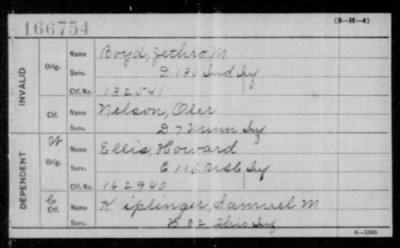 166754
(3-H-4)
INVALID
Orig.
Name Boyd, Jethro M
Serv. D 130 Ind Inf
Ctf. No. 132541
Ctf.
Name Nelson, Oler
Serv. D 7 Minn Inf
DEPENDENT
W
Orig.
Name Ellis, Howard
Serv. E 116 USC Inf
Ctf. No. 162940
C
Ctf.
Name Kiplinger, Samuel M
Serv. 32 Ohio Inf